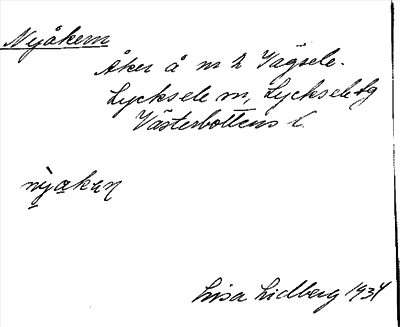 Nyåkern
Åker å nr 2 Vägsele.
Lycksele sn, Lycksele lg
Västerbottens l.
nyakɐn
Lisa Lidberg 1934